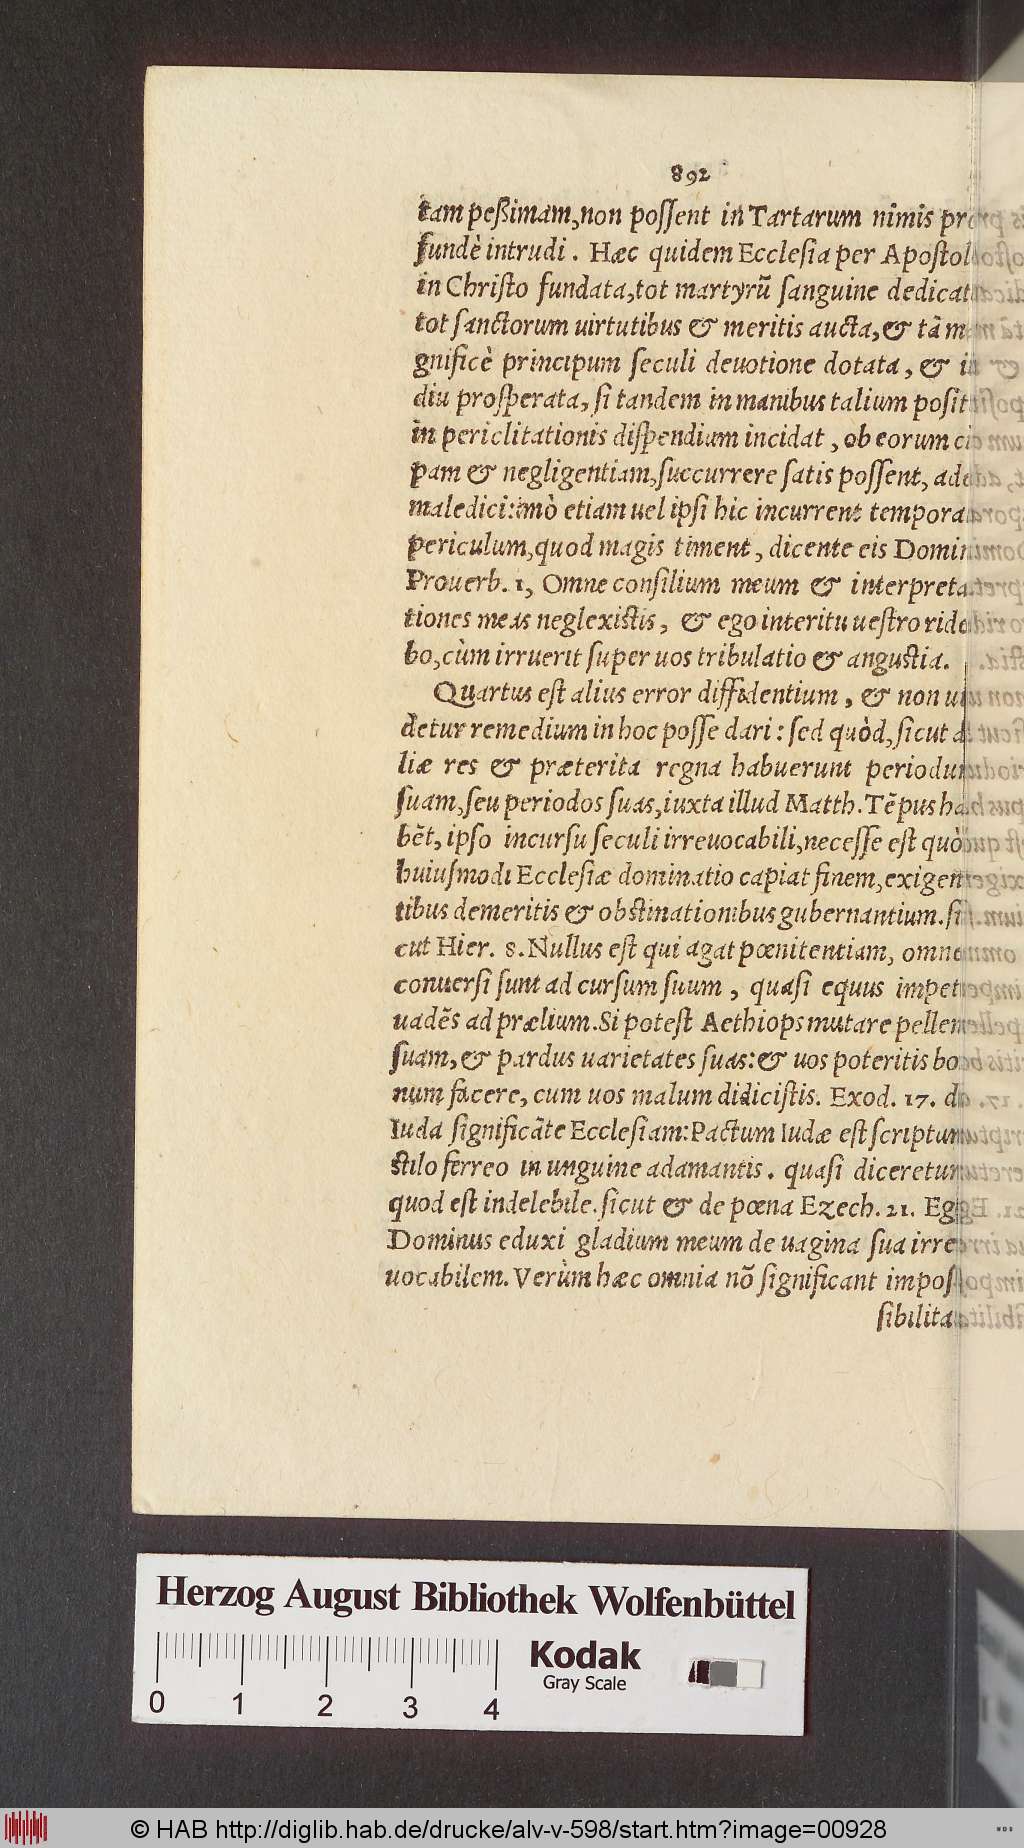 892
tam peßimam, non possent in Tartarum nimis pro
fundè intrudi. Hæc quidem Ecclesia per Apostol
in Christo fundata, tot martyrū sanguine dedicat
tot sanctorum uirtutibus & meritis aucta, & tā ma
gnificè principum seculi deuotione dotata, & in
diu prosperata, si tandem in manibus talium posit
in periclitationis dispendium incidat, ob eorum
pam & negligentiam, succurrere satis possent, ade
maledici: imò etiam uel ipsi hic incurrent tempora
periculum, quod magis timent, dicente eis Domin
Prouerb. 1, Omne consilium meum & interpreta
tiones meas neglexistis, & ego interitu uestro ride
bo, cùm irruerit super uos tribulatio & angustia.
Quartus est alius error diffidentium, & non ui
detur remedium in hoc posse dari: sed quòd, sicut a
liæ res & præterita regna habuerunt periodum
suam, seu periodos suas, iuxta illud Matth. Tēpus ha
bēt, ipso incursu seculi irreuocabili, necesse est quò
huiusmodi Ecclesiæ dominatio capiat finem, exigen
tibus demeritis & obstinationibus gubernantium. si
cut Hier. 8. Nullus est qui agat pœnitentiam, omne
conuersi sunt ad cursum suum, quasi equus impet
uadēs ad prælium. Si potest Aethiops mutare pellem
suam, & pardus uarietates suas: & uos poteritis bo
num facere, cum uos malum didicistis. Exod. 17. de
Iuda significāte Ecclesiam: Pactum Iudæ est scriptum
stilo ferreo in unguine adamantis. quasi diceretur
quod est indelebile. sicut & de pœna Ezech. 21. Eg
Dominus eduxi gladium meum de uagina sua irre
uocabilem. Verùm hæc omnia nō significant impos
sibilita
Herzog August Bibliothek Wolfenbüttel
0 1 2 3 4
Kodak
Gray Scale
© HAB http://diglib.hab.de/drucke/alv-v-598/start.htm?image=00928